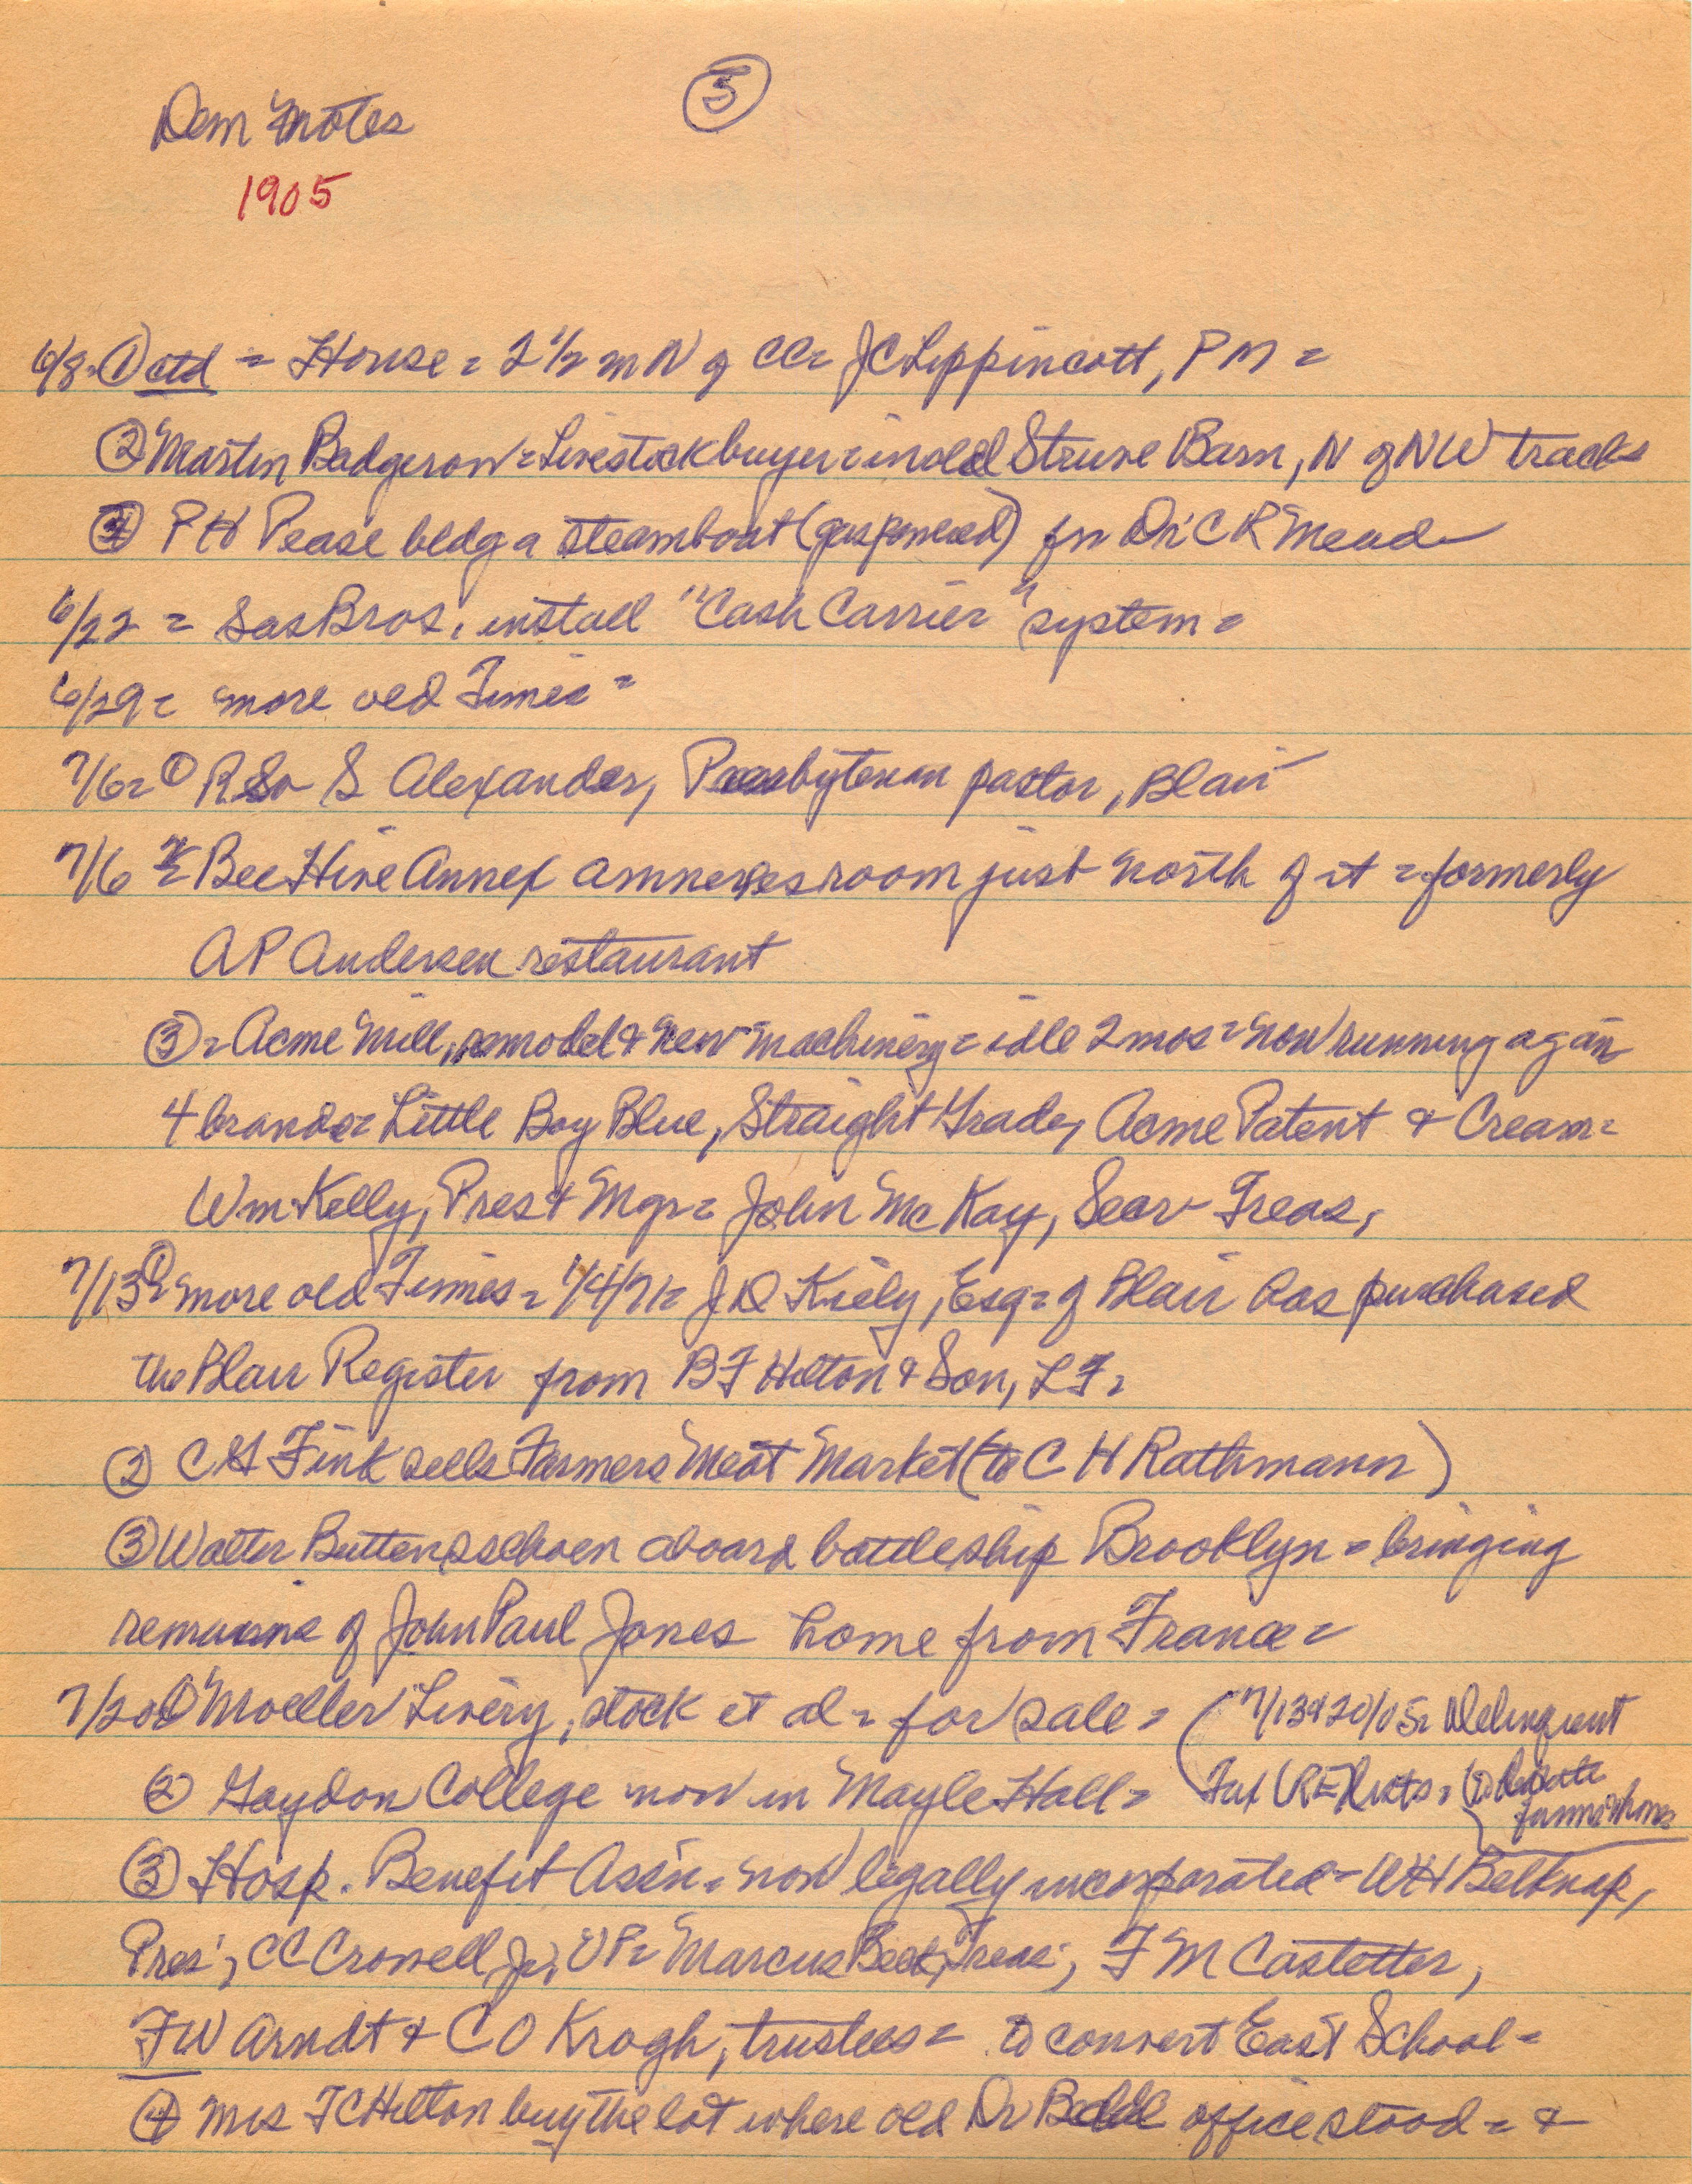 Dem Notes
5
1905
6/8 = ① ctd = House = 2 1/2 m N of CC = JC Lippincott, PM =
② Martin Badgerow = Livestock buyer = in old Struve Barn, N of NW tracks
③ PH Pease bldg a steamboat (gas powered) for Dr. C R Mead
6/22 = Sas Bros. install "Cash Carrier" system =
6/29 = more old Times =
7/6 = ① S Alexander, Presbyterian pastor, Blair
7/6 = Bee Hive Annex annexes room just north of it = formerly
AP Andersen restaurant
③ = Acme Mill, remodel & new machinery = idle 2 mos = now running again
4 brands = Little Boy Blue, Straight Grade, Acme Patent & Cream =
Wm Kelly, Pres & Mgr = John McKay, Secr Treas,
7/13 ① = more old Times = 1/4/71 = J D Kiely, Esq = of Blair has purchased
the Blair Register from BF Hilton & Son, LF =
② C H Fink sells Farmers Meat Market (to C H Rathmann)
③ Walter Buttenschoen aboard battleship Brooklyn = bringing
remains of John Paul Jones home from France =
7/20 ① Moeller Livery, stock et al = for sale =
(7/13 & 20/05 = Delinquent
Tax RE Lists =
② Gaydon College now in Mayle Hall =
③ Hosp. Benefit Assn. = now legally incorporated = WH Belknap,
Pres', CC Crowell Jr, VP = Marcus Beck, Treas', F M Castetter,
FW Arndt & C O Krogh, trustees = to convert East School =
④ Mrs FC Hilton buy the lot where old Dr Bedal office stood = &